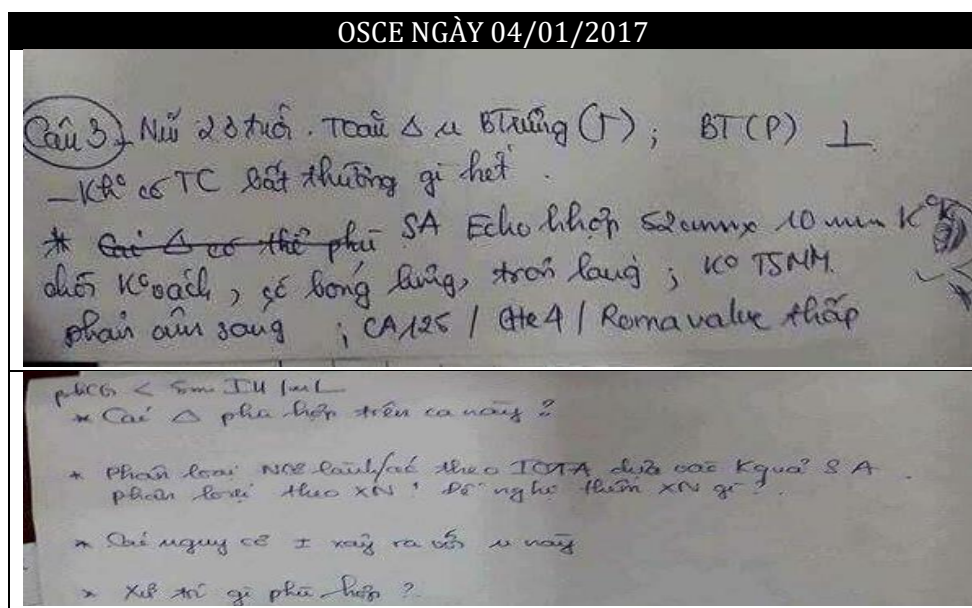 OSCE NGÀY 04/01/2017
Câu 3) Nữ 23 tuổi. TCaũ Δ u BTrứng (T); BT (P) ⊥
– Kh° có TC bất thường gì hết.
* Cái Δ có thể phù SA Echo hỗn hợp 52 mmx 10 mm K°
chồi K° vách, có bóng lưng, tròn láng; K° TSMM.
phản âm sáng ; CA125 / He4 / Roma value thấp
βhCG < 5 mIU/mL
* Các Δ phù hợp trên ca này?
* Phân loại NC lành/ác theo IOTA dựa vào Kquả SA.
phân loại theo XN? Đề nghị thêm XN gì?
* Các nguy cơ ± xảy ra với u này
* Xử trí gì phù hợp?